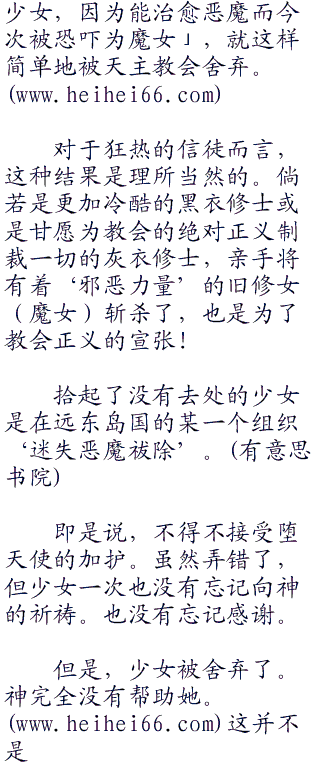 少女，因为能治愈恶魔而今
次被恐吓为魔女」，就这样
简单地被天主教会舍弃。
(www.heihei66.com)
对于狂热的信徒而言，
这种结果是理所当然的。倘
若是更加冷酷的黑衣修士或
是甘愿为教会的绝对正义制
裁一切的灰衣修士，亲手将
有着‘邪恶力量’的旧修女
（魔女）斩杀了，也是为了
教会正义的宣张！
拾起了没有去处的少女
是在远东岛国的某一个组织
‘迷失恶魔祓除’。(有意思
书院)
即是说，不得不接受堕
天使的加护。虽然弄错了，
但少女一次也没有忘记向神
的祈祷。也没有忘记感谢。
但是，少女被舍弃了。
神完全没有帮助她。
(www.heihei66.com)这并不
是